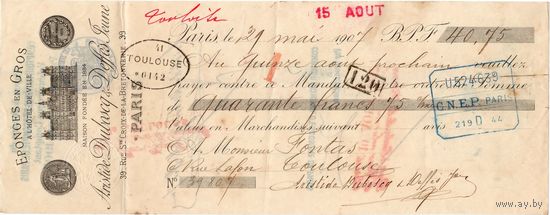 Toulouse
15 AOUT
Paris, le 29 mai 1907 B.P.F. 40,75
Au Quinze aout prochain veuillez
payer contre ce Mandat
Somme
de Quarante francs 75
Valeur en Marchandises suivant avis
A Monsieur Pontas
Rue Lafon Toulouse
N° 39809
Aristide Dutocq & Deffès Jeune
EPONGES EN GROS
A L'HÔTEL-DE-VILLE
MAISON FONDÉE EN 1834
Aristide Dutocq & Deffès Jeune
39, Rue Ste Croix-de-la-Bretonnerie, 39
PARIS
41
TOULOUSE
*0142
120
C.N.E.P. PARIS
219 D 44
www.ay.by